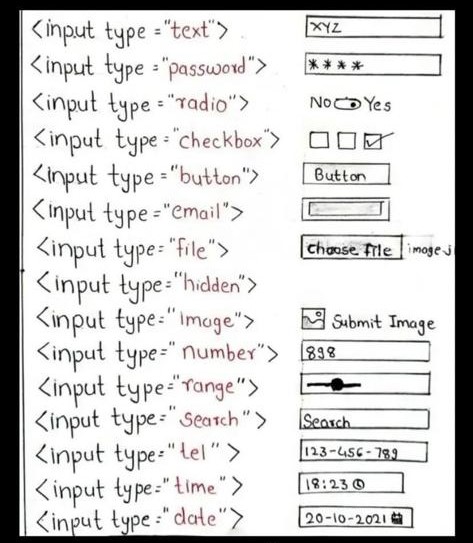 <input type="text"> XYZ
<input type="password"> ****
<input type="radio"> No Yes
<input type="checkbox">
<input type="button"> Button
<input type="email">
<input type="file"> choose file image.j
<input type="hidden">
<input type="image"> Submit Image
<input type="number"> 898
<input type="range">
<input type="Search"> Search
<input type="tel"> 123-456-789
<input type="time"> 18:23
<input type="date"> 20-10-2021